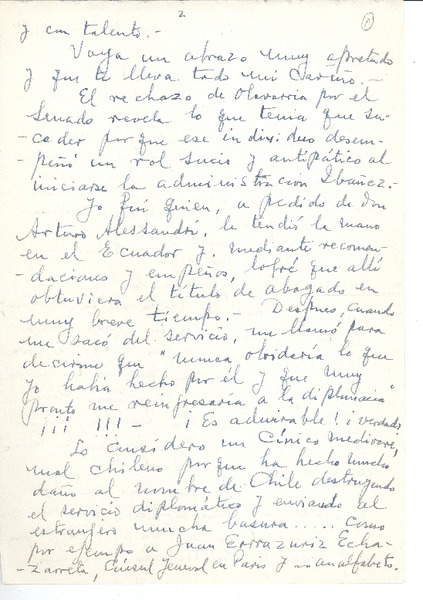 2
y con talento.-
Vaya un abrazo muy apretado
y que te lleva todo mi cariño.-
El rechazo de Olavarría por el
Senado revela lo que tenía que su-
-ceder porque ese individuo desem-
-peñó un rol sucio y antipático al
iniciarse la administración Ibáñez.-
Yo fuí quien, a pedido de don
Arturo Alessandri, le tendís la mano
en el Ecuador y, mediante recomen-
-daciones y empeños, logré que allí
obtuviera el título de abogado en
muy breve tiempo.- Después, cuando
me sacó del servicio, me llamó para
decirme que "nunca olvidaría lo que
yo había hecho por él y que muy
pronto me reingresaría a la diplomacia"
¡¡¡ !!! - ¡Es admirable! ¿verdad?
Lo considero un cínico mediocre,
mal chileno porque ha hecho mucho
daño al nombre de Chile destruyendo
el servicio diplomático y enviando al
extranjero mucha basura..... Como
por ejemplo a Juan Errazuriz Echa-
-zarreta, Cónsul General en Paris y analfabeto.